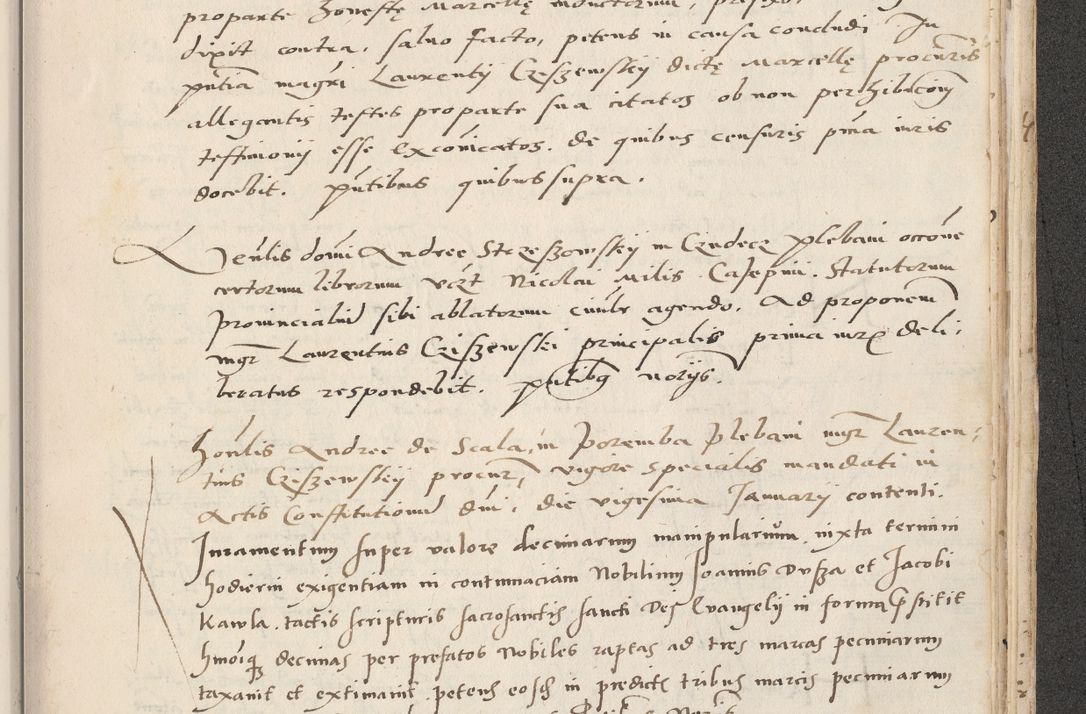 proparte honestę Marcellę inductorum, prefixo.
dixit contra, salvo facto, petens in causa concludi In
pñtia magri Laurentij Czeszewskij dictę Marcellę procuris
allegantis testes proparte sua citatos ob non perhibicõem
testimonij esse excõicatos. de quibus censuris pña iuris
docebit. pñtibus quibus supra.
Veñlis domi Andree Strzeszowskij in Czudecz plebani occõne
certorum librorum vczt Nicolai Milis Calepini. Statutorum
provincialiũ sibi ablatorum civilr agendo. Ad proponem
mgr Laurentius Czeszewskei principalis prima iurx deli:
beratus respondebit. pñtibq noryis.
Honlis Andree de Scala, in Poremba plebani mgr Lauren:
tius Czeszewskij procur, vigore specialis mandati in
Actis Constitutionũ dni, die vigesima Januarij contenti.
Juramentum super valorę decimarum manipularium, iuxta termini
hodierni exigentiam in contumaciam Nobilium Joannis Dusza et Jacobi
Kawla. tactis scripturis sacrosanctis sancti Dei Evangelij in forma pstitit
hmõiq decimas per prefatos Nobiles raptas ad tres marcas pecuniarum
taxavit et extimavit, petens eosdem in predictis tribus marcis pecuniarum